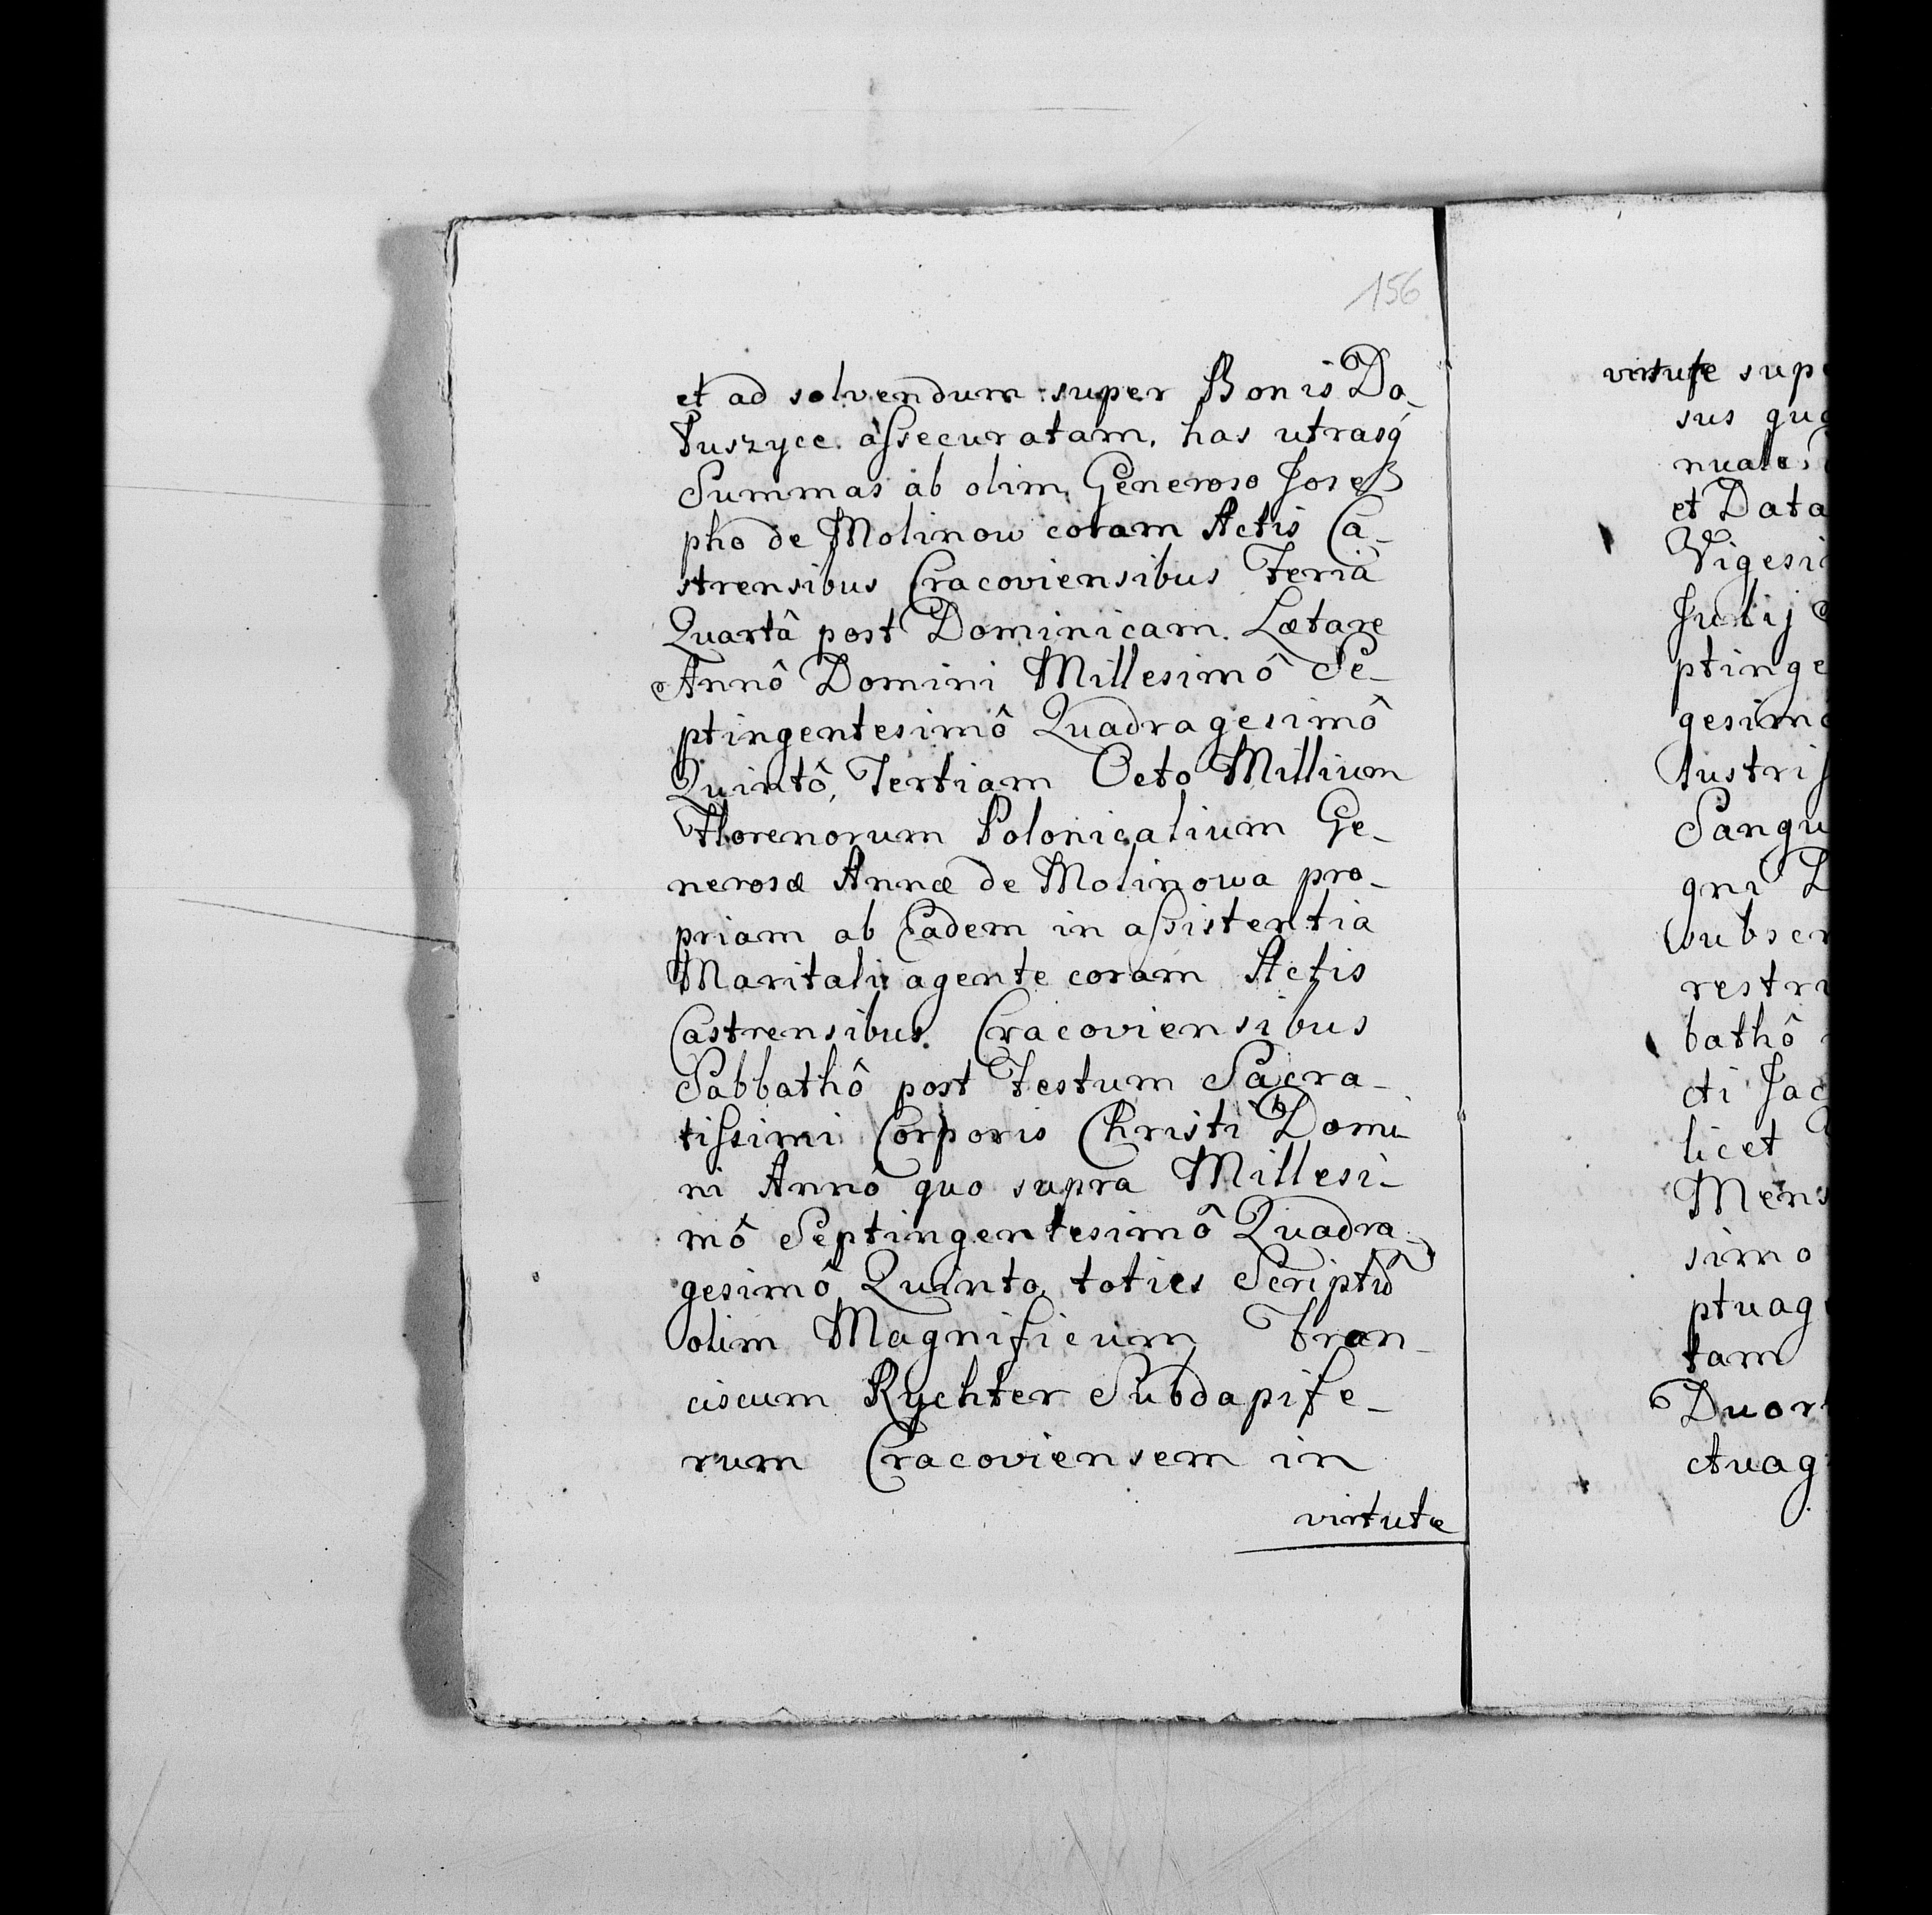 156
et ad solvendum super Bonis Da-
tuszyce assecuratam, has utrasq
Summas ab olim Generoso Jose
pho de Molinow coram Actis Ca-
strensibus Cracoviensibus Feria
Quartâ post Dominicam Lætare
Annô Domini Millesimô Se-
ptingentesimô Quadragesimô
Quintô, Tertiam Octo Millium
Florenorum Polonicalium Ge-
nerosæ Annæ de Molinowa pro-
priam ab Eadem in assistentia
Maritali agente coram Actis
Castrensibus Cracoviensibus
Sabbathô post Festum Sacra-
tissimi Corporis Christi Domi
ni Annô quo supra Millesi-
mô Septingentesimô Quadra
gesimô Quinto toties Scriptũ
olim Magnificum Fran-
ciscum Rychter Subdapife-
rum Cracoviensem in
virtute
virtute sup
sus quo
nuale
et Data
Vigesi
Julij
ptinge
gesimo
lustris
Sangu
gni D
subscr
restri
bathô
cti Jac
licet
Mens
simo
ptuag
tam
Duor
ctuag